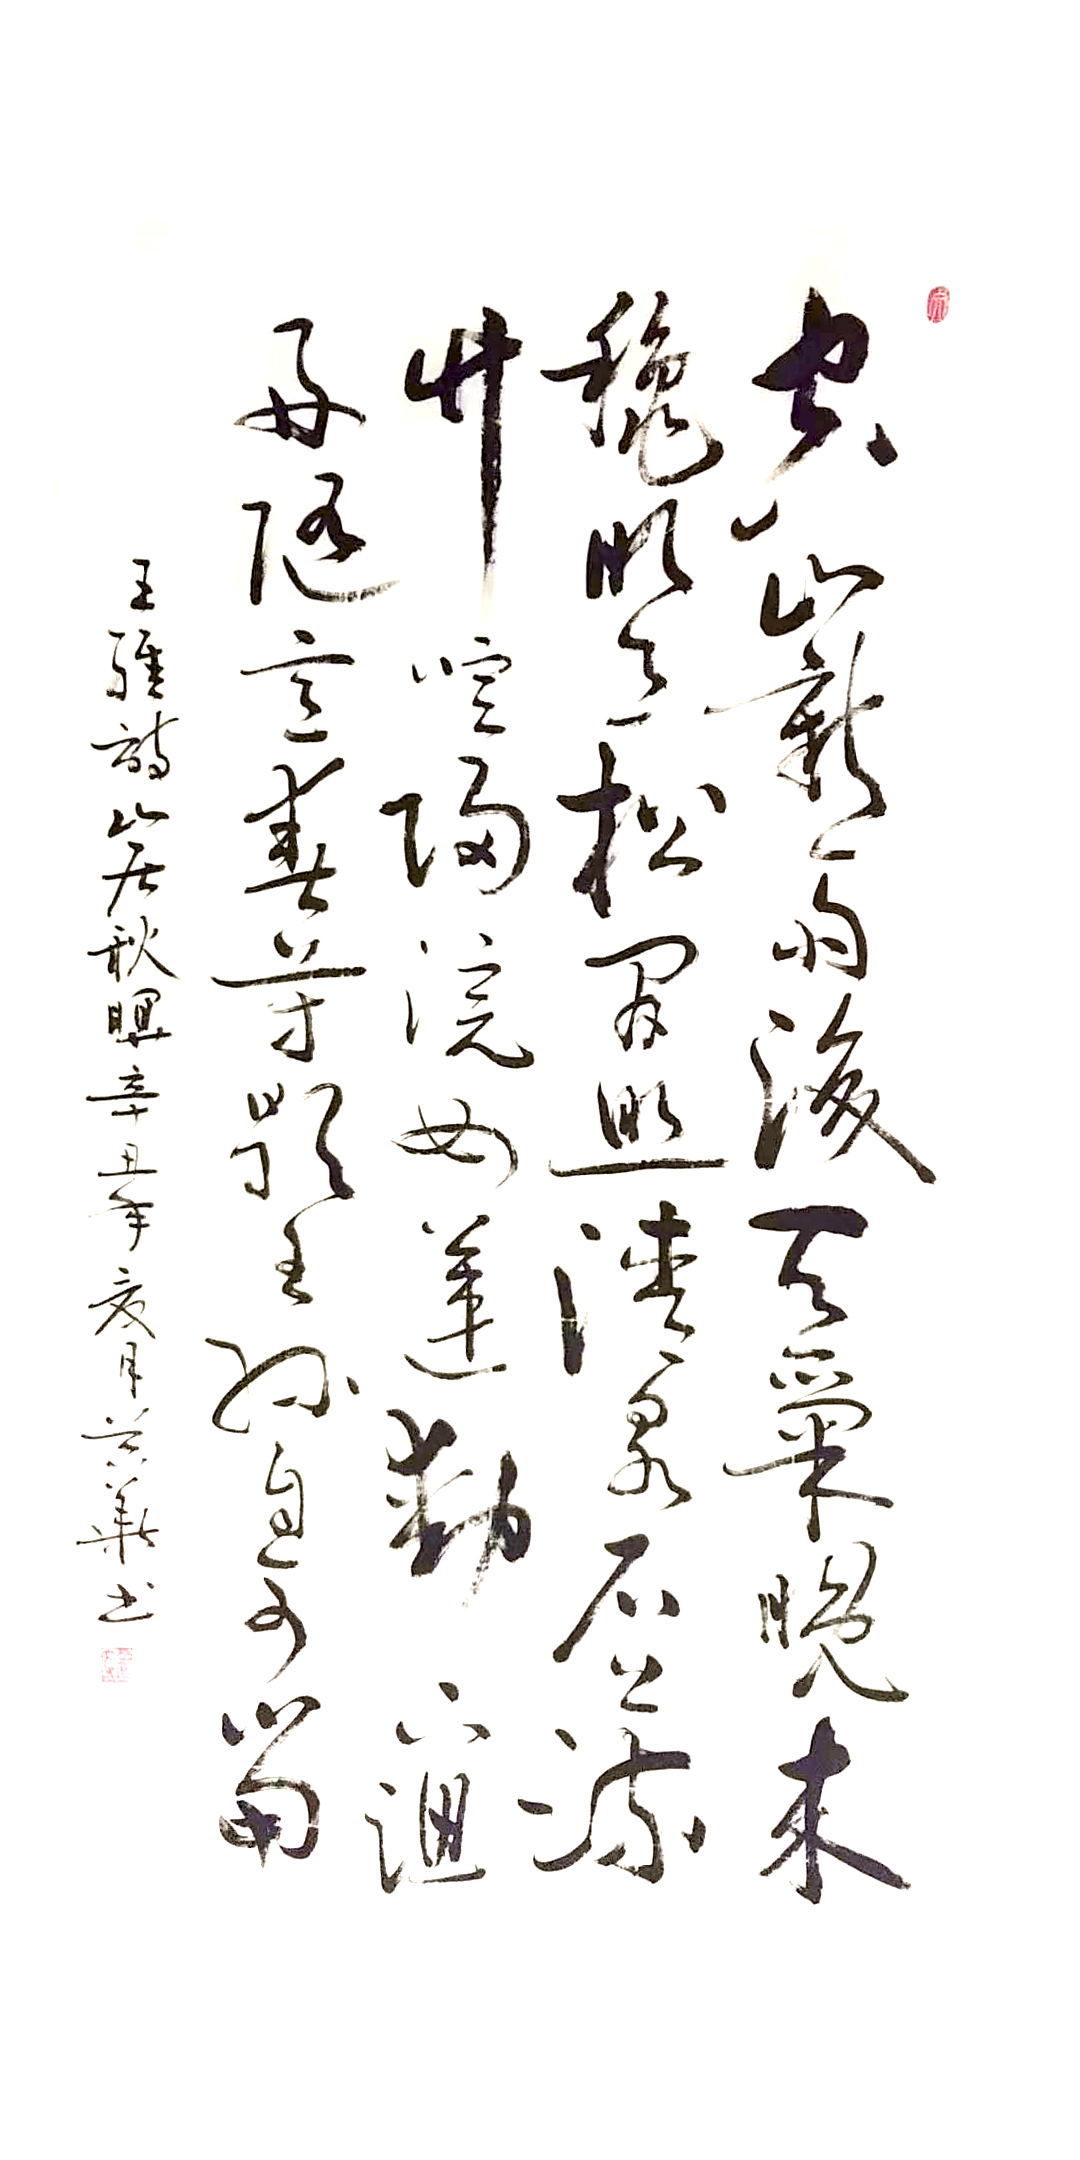 空山新雨後天氣晚來
秋明月松間照清泉石上流
竹喧歸浣女蓮動下漁
舟隨意春芳歇王孫自可留
王維詩山居秋暝辛丑年亥月 華書